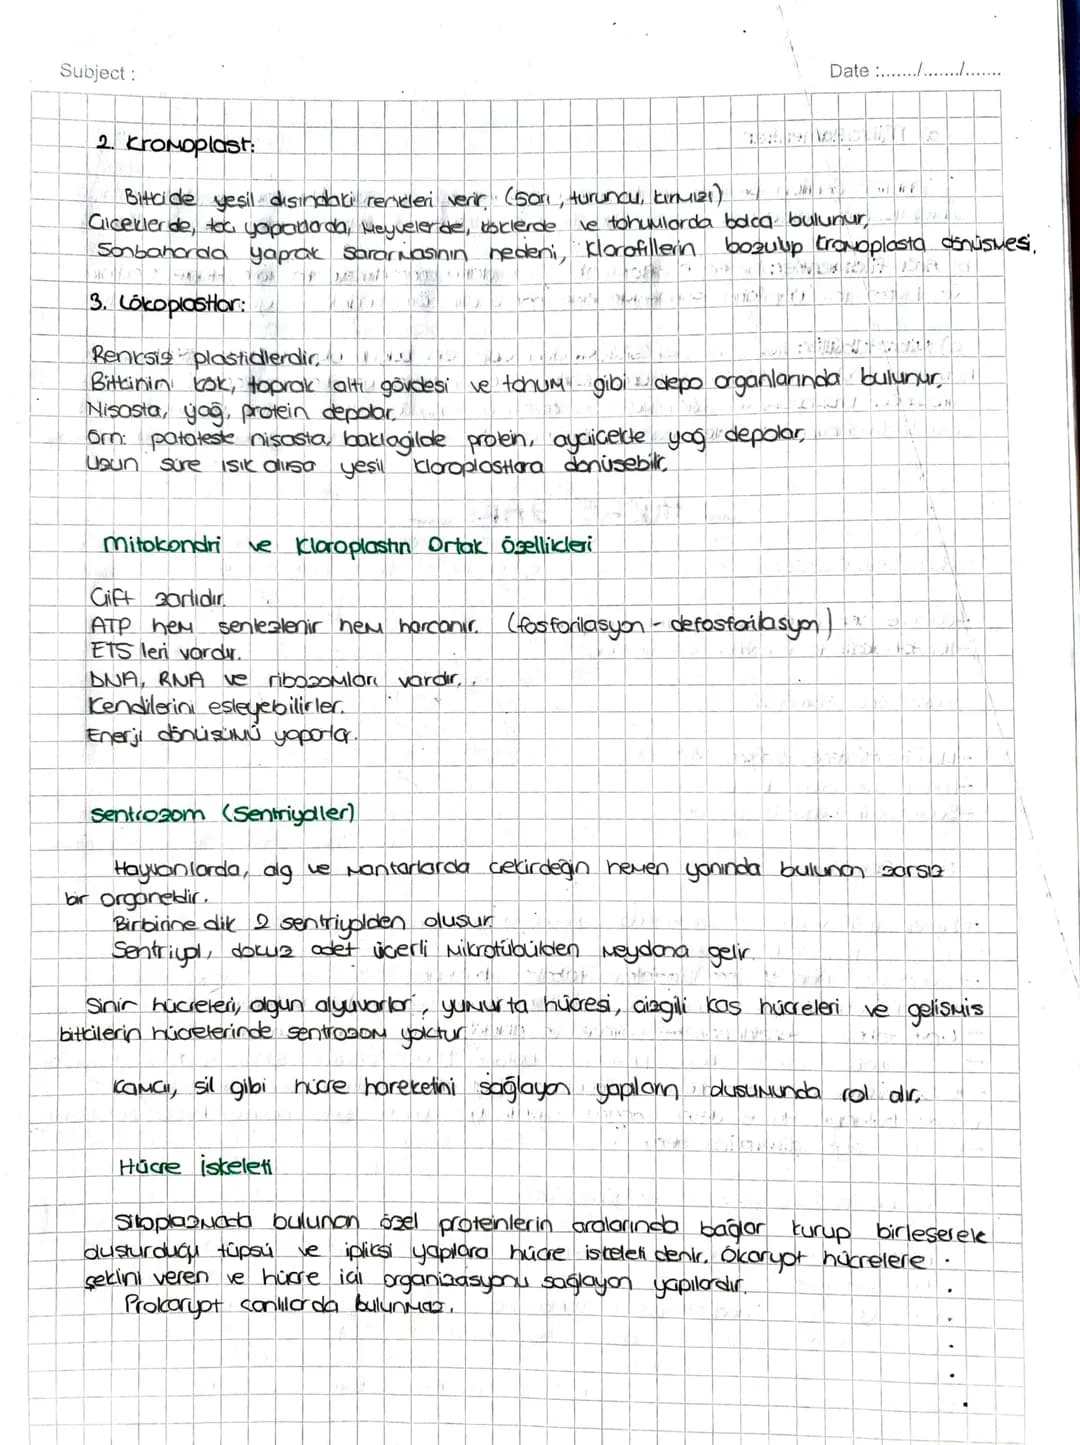 Subject :
Date :......./......./.......
2. Kromoplast:
Bitkide yeşil dışındaki renkleri verir. (sarı, turuncu, kırmızı)
Çiçeklerde, taç yapraklarda, meyvelerde, köklerde ve tohumlarda bolca bulunur.
Sonbaharda yaprak sararmasının nedeni, klorofillerin bozulup kromoplasta dönüşmesi.
3. Lökoplastlar:
Renksiz plastidlerdir.
Bitkinin kök, toprak altı gövdesi ve tohum gibi depo organlarında bulunur.
Nişasta, yağ, protein depolar.
Örn: patateste nişasta, baklagilde protein, ayçiçekte yağ depolar.
Uzun süre ışık alırsa yeşil kloroplastlara dönüşebilir.
Mitokondri ve Kloroplastın Ortak Özellikleri
Çift zarlıdır.
ATP hem sentezlenir hem harcanır. (fosforilasyon - defosforilasyon)
ETS leri vardır.
DNA, RNA ve ribozomları vardır.
Kendilerini eşleyebilirler.
Enerji dönüşümü yaparlar.
Sentrozom (Sentriyoller)
Hayvanlarda, alg ve mantarlarda çekirdeğin hemen yanında bulunan zarsız
bir organeldir.
Birbirine dik 2 sentriyolden oluşur.
Sentriyol, dokuz adet üçerli mikrotübülden meydana gelir.
Sinir hücreleri, olgun alyuvarlar, yumurta hücresi, çizgili kas hücreleri ve gelişmiş
bitkilerin hücrelerinde sentrozom yoktur.
Kamçı, sil gibi hücre hareketini sağlayan yapıların oluşumunda rol alır.
Hücre İskeleti
Sitoplazmada bulunan özel proteinlerin aralarında bağlar kurup birleşerek
oluşturduğu tüpsü ve ipliksi yapılara hücre iskeleti denir. Ökaryot hücrelere
şeklini veren ve hücre içi organizasyonu sağlayan yapılardır.
Prokaryot canlılarda bulunmaz.